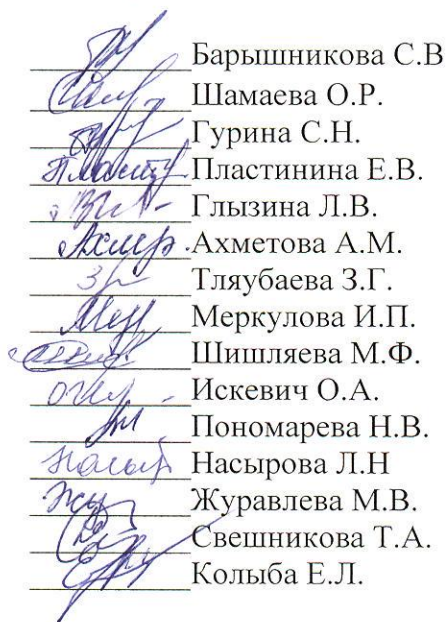 Барышникова С.В
Шамаева О.Р.
Гурина С.Н.
Пластинина Е.В.
Глызина Л.В.
Ахметова А.М.
Тляубаева З.Г.
Меркулова И.П.
Шишляева М.Ф.
Искевич О.А.
Пономарева Н.В.
Насырова Л.Н
Журавлева М.В.
Свешникова Т.А.
Колыба Е.Л.